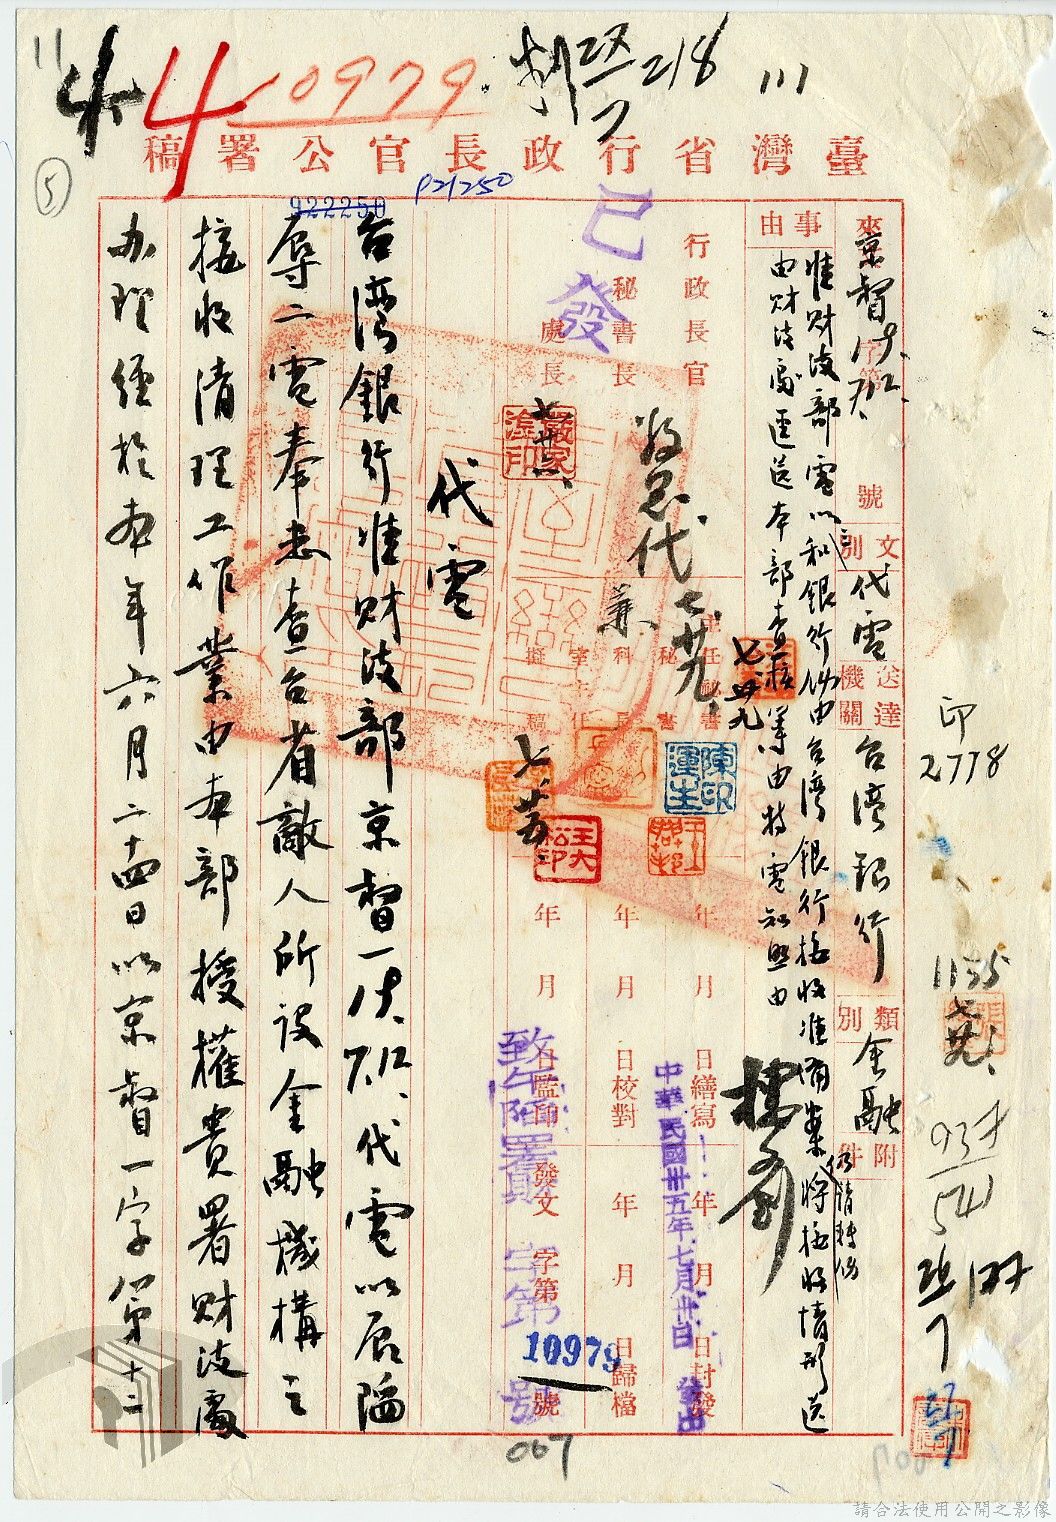 11
4
4
10979
25/7
218
111
⑤
臺灣省行政長官公署稿
922250
P21250
京督
字第
號
文別
代電
送達機關
台灣銀行
類別
金融
附件
事由
准財政部電以三和銀行仍由台灣銀行接收准備案仍請轉飭將接收情形送
由財政處逕送本部查核等由特電知照由
行政長官
秘書長
處長
已發
嚴家淦印
七廿六
代
七廿九
七廿九
主任秘書
秘書
科長
室主任
擬稿
陳運生印
王大松印
年 月 日繕寫
年 月 日校對
年 月 日監印
年 月 日封發
年 月 日歸檔
發文 字第 號
中華民國卅五年七月卅日
發出
致午陷署財 字第 號
10979
007
代電
台灣銀行准財政部京督一代電以辰陷
辱二電奉悉查台省敵人所設金融機構之
接收清理工作業由本部授權貴署財政處
办理經於本年六月二十四日以京督一字第十二
印
2778
1155
七廿九
541
請合法使用公開之影像